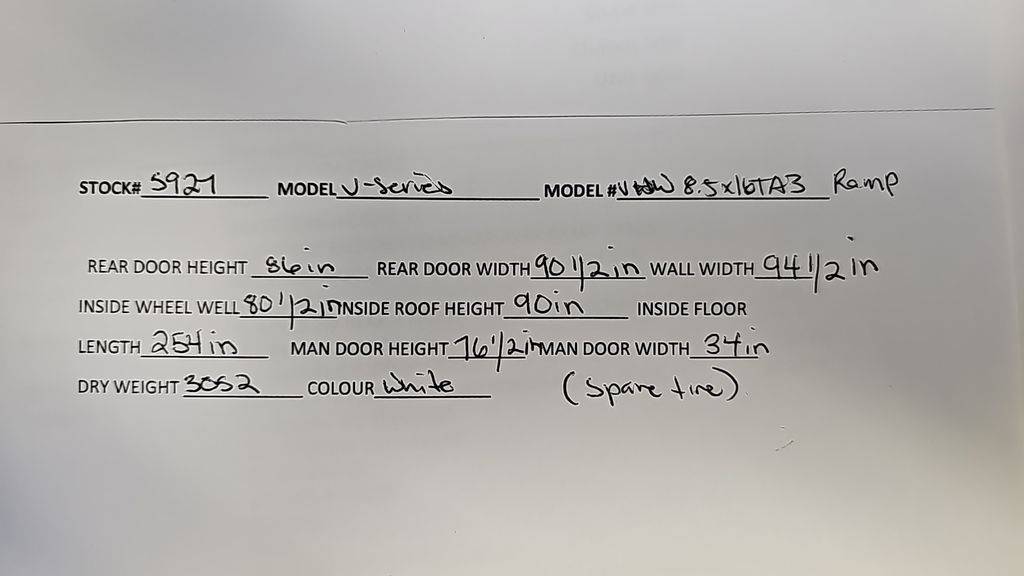 STOCK# 5927 MODEL V-Series MODEL # 8.5x16TA3 Ramp
REAR DOOR HEIGHT 86in REAR DOOR WIDTH 90 1/2 in WALL WIDTH 94 1/2 in
INSIDE WHEEL WELL 80 1/2 in INSIDE ROOF HEIGHT 90in INSIDE FLOOR
LENGTH 254in MAN DOOR HEIGHT 76 1/2in MAN DOOR WIDTH 34in
DRY WEIGHT 3052 COLOUR White (Spare tire)